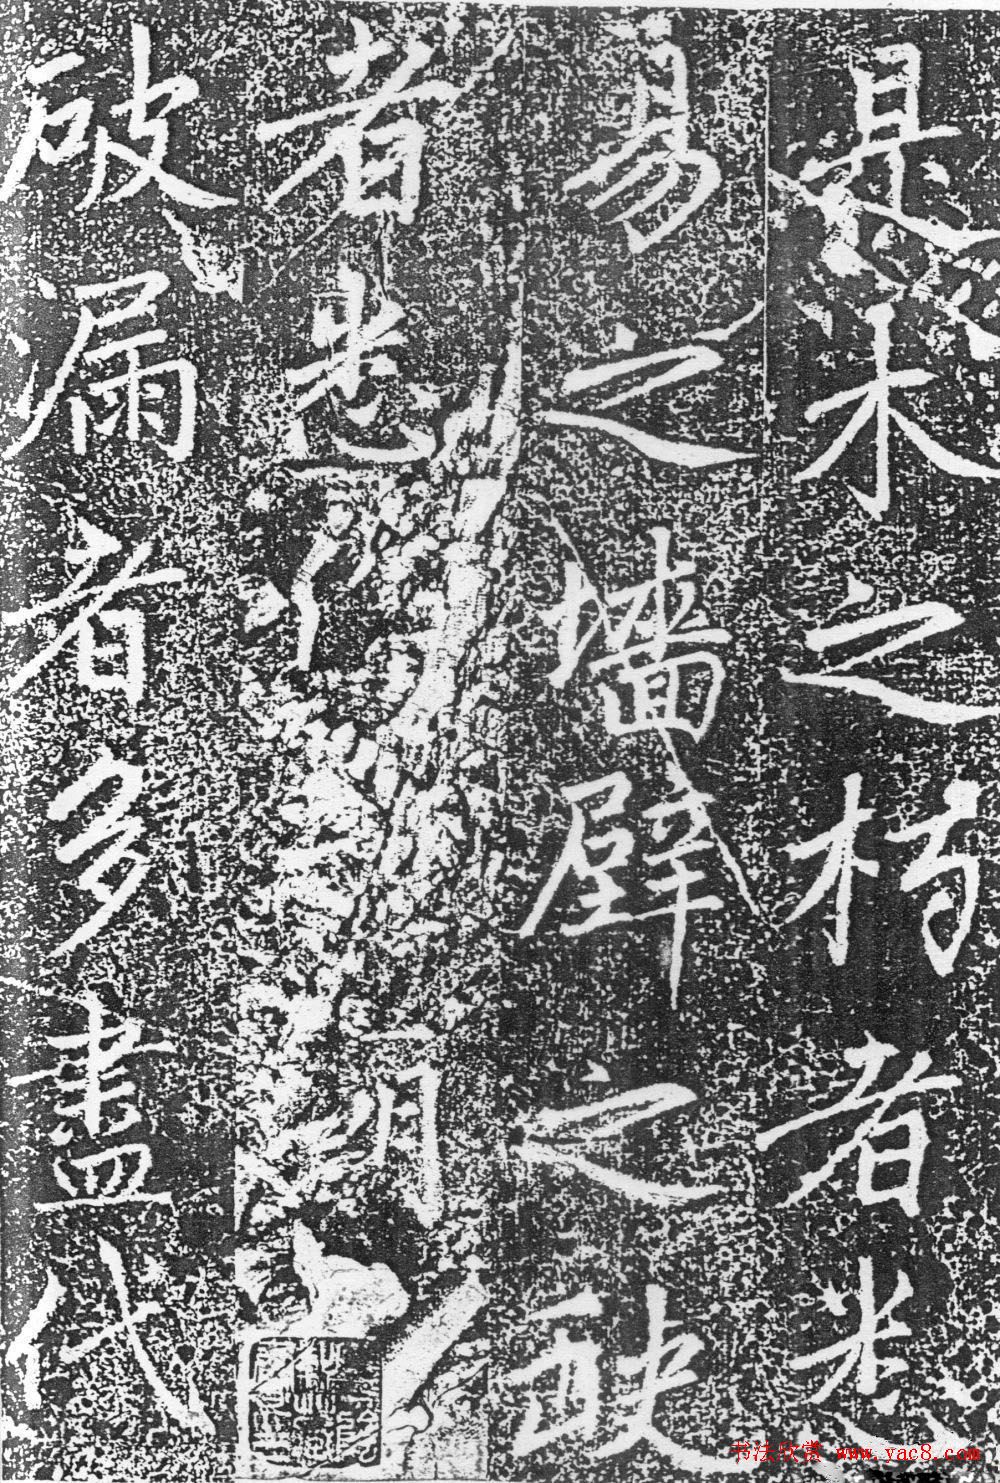 是木之朽者悉
易之墻壁之缺
者悉
破漏者多盡代
书法欣赏 www.yac8.com